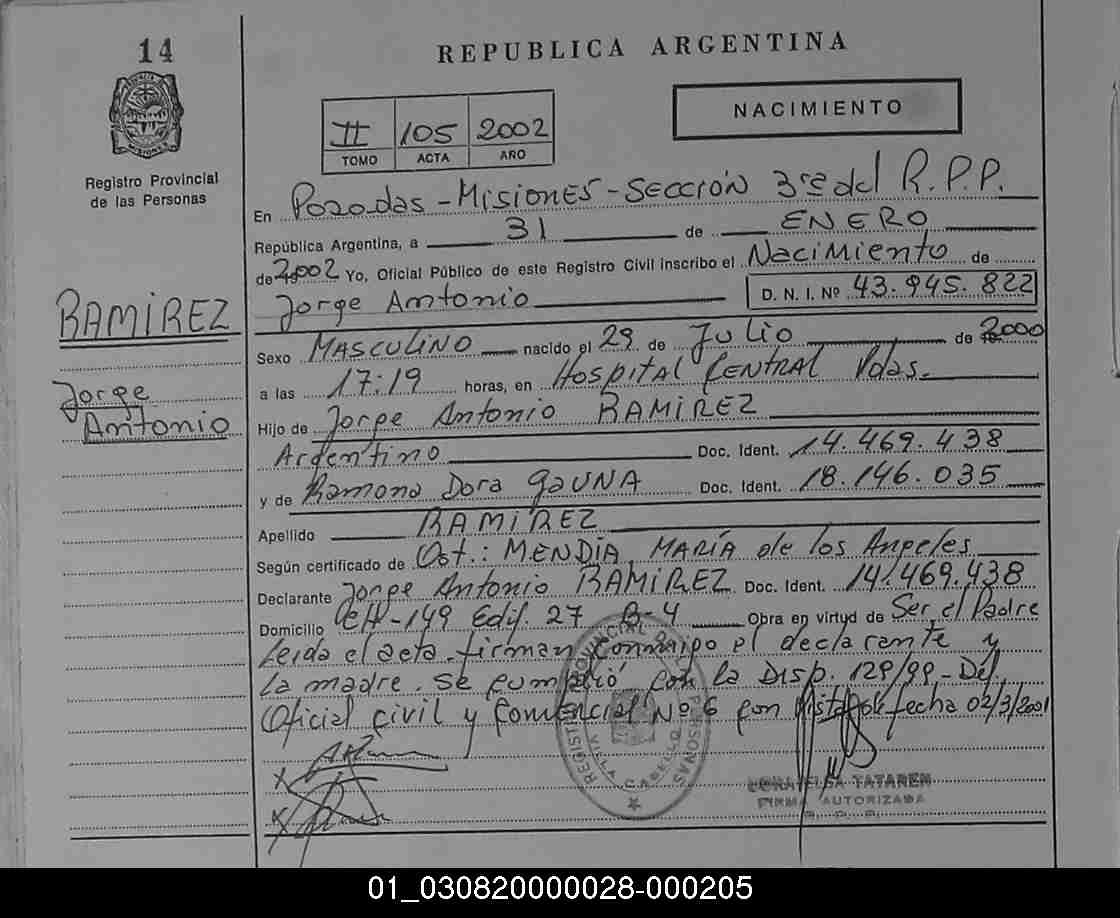 14
REPUBLICA ARGENTINA
NACIMIENTO
II 105 2002
TOMO ACTA AÑO
Registro Provincial
de las Personas
En Posadas - Misiones - Sección 3ra del R.P.P.
República Argentina, a 31 de ENERO
de 2002 Yo, Oficial Público de este Registro Civil inscribo el Nacimiento de
Jorge Antonio D. N. I. Nº 43.945.822
RAMIREZ
Jorge
Antonio
Sexo MASCULINO nacido el 29 de Julio de 2000
a las 17:19 horas, en Hospital CENTRAL Pdas.
Hijo de Jorge Antonio RAMIREZ
Argentino Doc. Ident. 14.469.438
y de Ramona Dora GAUNA Doc. Ident. 18.146.035
Apellido RAMIREZ
Según certificado de Ost.: MENDIA, MARÍA de los Angeles
Declarante Jorge Antonio RAMIREZ Doc. Ident. 14.469.438
Domicilio CH-149 Edif. 27 B-4 Obra en virtud de Ser el Padre
Leida el acta firman conmigo el declarante y
la madre. Se cumplió con la Disp. 129/99 - Del
Oficial civil y Comencial Nº 6 con vista de fecha 02/3/2001
REGISTRO PROVINCIAL DE LAS PERSONAS
VILLA CABELLO
TATAREN
FIRMA AUTORIZADA
R. P. P.
01_030820000028-000205